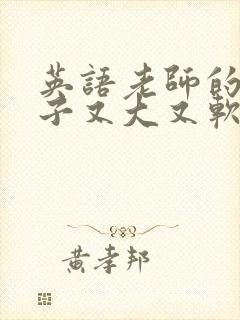 英語老師的
子又大又軟
黃孝邦